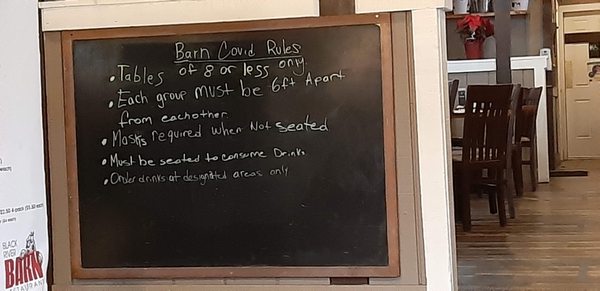 Barn Covid Rules
• Tables of 8 or less only.
• Each group must be 6ft Apart
from eachother.
• Masks required when Not seated
• Must be seated to consume Drinks
• Order drinks at designated areas only
BLACK
RIVER
BARN